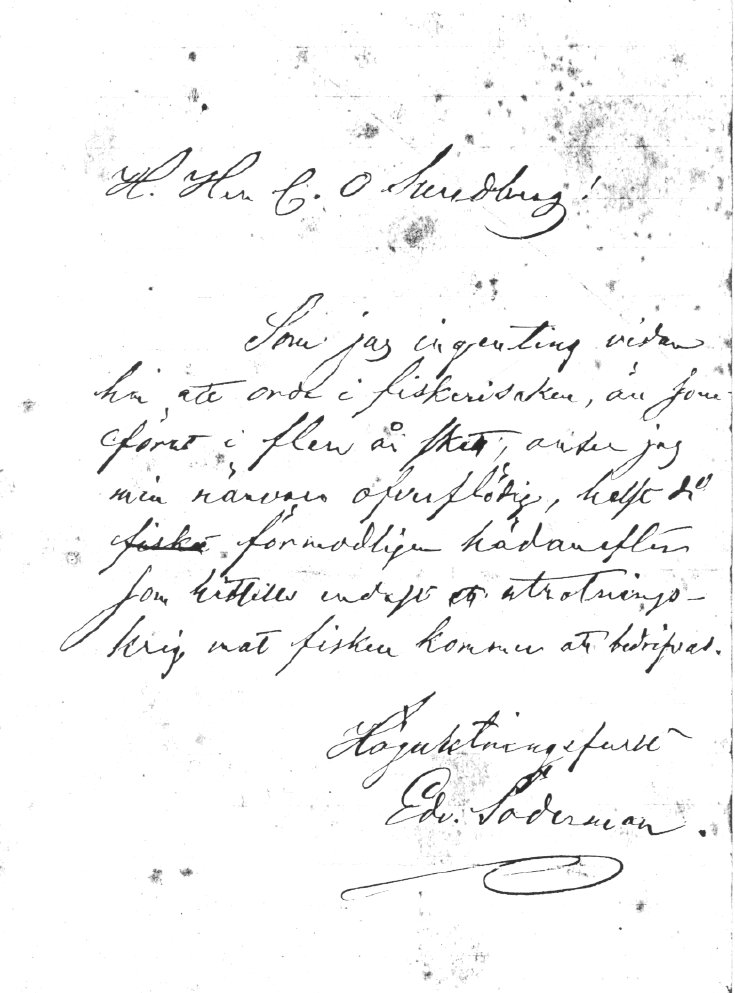 H. Herr C. O Sundberg!
Som jag ingenting vidare
har att orda i fiskerisaken, än som
förut i flere år skett, anser jag
min närvaro öfverflödig, helst då
fiske förmodligen hädanefter
som hittills endast ett utrotnings-
krig mot fisken kommer att bedrifvas.
Högaktningsfullt
Edv. Söderman.